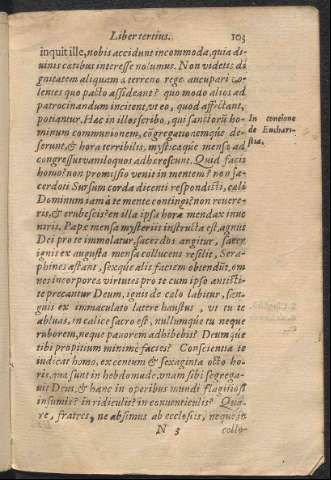 Liber tertius. 103
inquit ille, nobis accidunt incommoda, quia di-
uinis cœtibus interesse nolumus. Non videtis di
gnitatem aliquam à terreno rege aucupari vo-
lentes quo pacto assideant? quo modo alios ad
patrocinandum incitent, vt eo, quod affectant,
potiantur. Hæc in illos scribo, qui sanctorũ ho-
minum communionem, cõgregationemque de-
serunt, & hora terribilis, mysticæque mensæ ad
congressus vaniloquos adhærescunt. Quid facis
homo? non promissio venit in mentem? non sa-
cerdoti Sursum corda dicenti respondisti, cælũ
Dominum iam à te mente contingi? non reuere-
ris, & erubescis? en illa ipsa hora mendax inue
niris. Papæ mensa mysterijs instructa est, agnus
Dei pro te immolatur, sacerdos angitur, sacer
ignis ex augusta mensa collucens resilit, Sera-
phines astant, sexque alis faciem obtendũt, om
nes incorporeæ virtutes pro te cum ipso antisti-
te precantur Deum, ignis de cælo labitur, san-
guis ex immaculato latere haustus, vt tu te
abluas, in calice sacro est, nullumque tu neque
ruborem, neque pauorem adhibebis? Deumque
tibi propitium minimè facies? Conscientia te
iudicat homo, ex centum & sexaginta octo ho
ris, quæ sunt in hebdomade, vnam sibi segrega-
uit Deus, & hanc in operibus mundi flagitiosè
insumis? in ridiculis? in conuenticulis? Qua-
re, fratres, ne absimus ab ecclesiis, neque in
N 3 collo-
In concione
de Euchari-
stia.